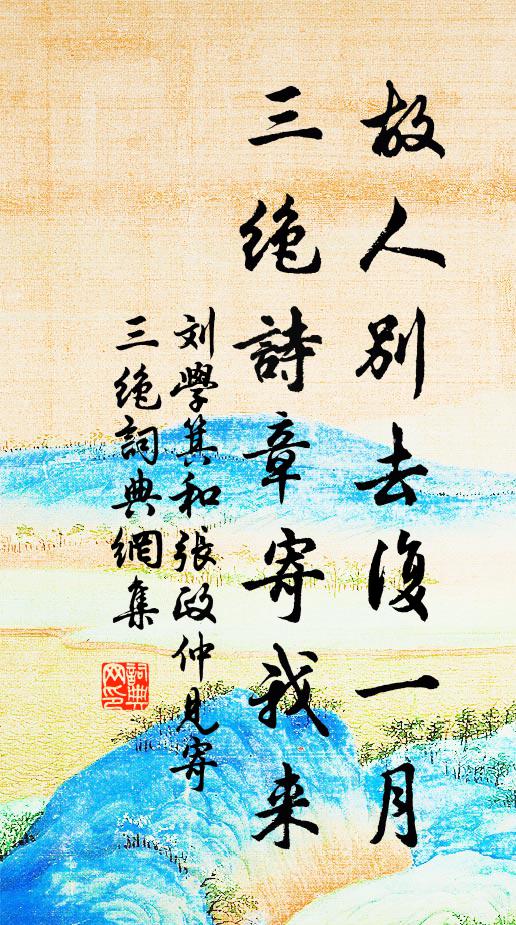 故人别去復一月
三絶詩章寄我来
刘學箕和張政仲見寄
三絶詞典網集
詞典網印